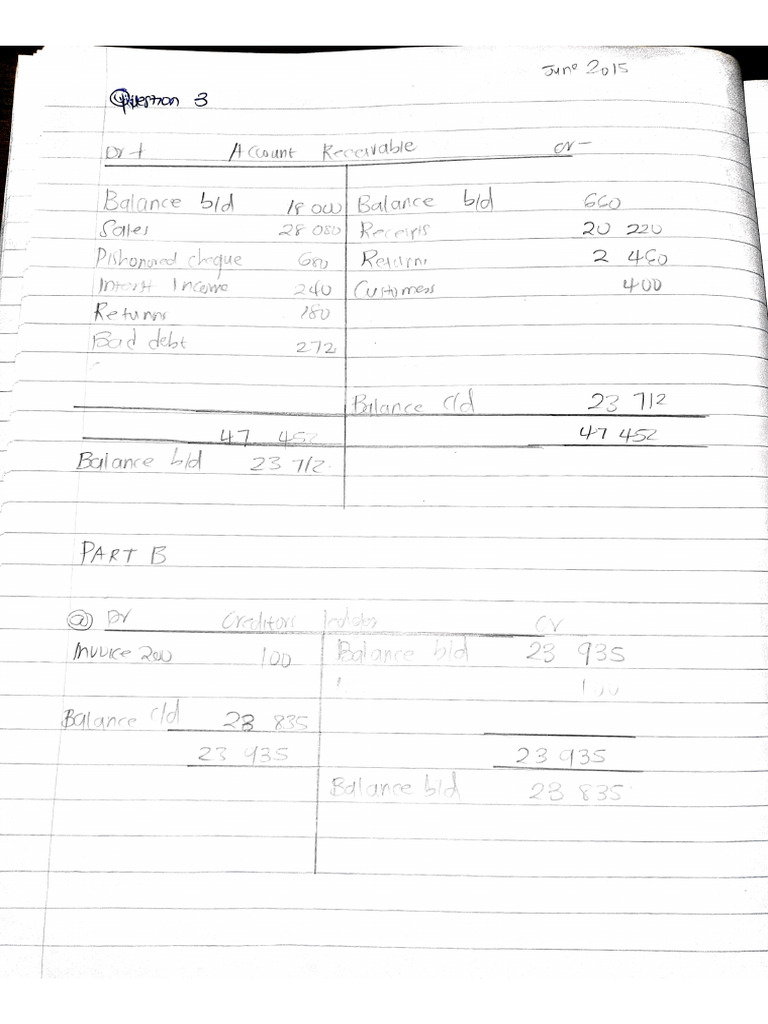 June 2015
Question 3
Dr + Account Receivable cr -
Balance b/d 18 000 Balance b/d 660
Sales 28 080 Receipts 20 220
Dishonored cheque 680 Returns 2 460
Interst Income 240 Customers 400
Returns 180
Bad debt 272
Balance c/d 23 712
47 452 47 452
Balance b/d 23 712
PART B
(a) Dr Creditors Cr
Invoice 200 100 Balance b/d 23 935
100
Balance c/d 23 835
23 935 23 935
Balance b/d 23 835